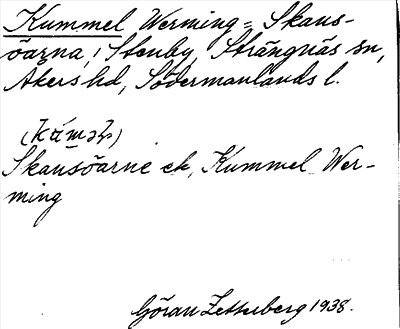 Kummel Werming = Skans-
öarna, i Stenby, Strängnäs sn,
Åkers hd, Södermanlands l.
Skansöarne ek, Kummel Wer-
ming
Göran Zetterberg 1938.